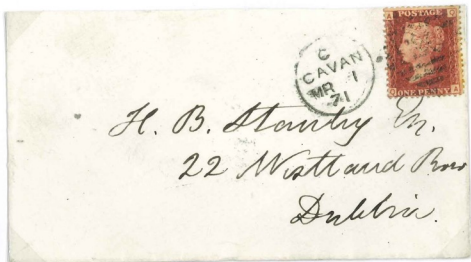 POSTAGE
ONE PENNY
C
CAVAN
MR 1
71
H. B. Stanley Esq.
22 Westland Row
Dublin.